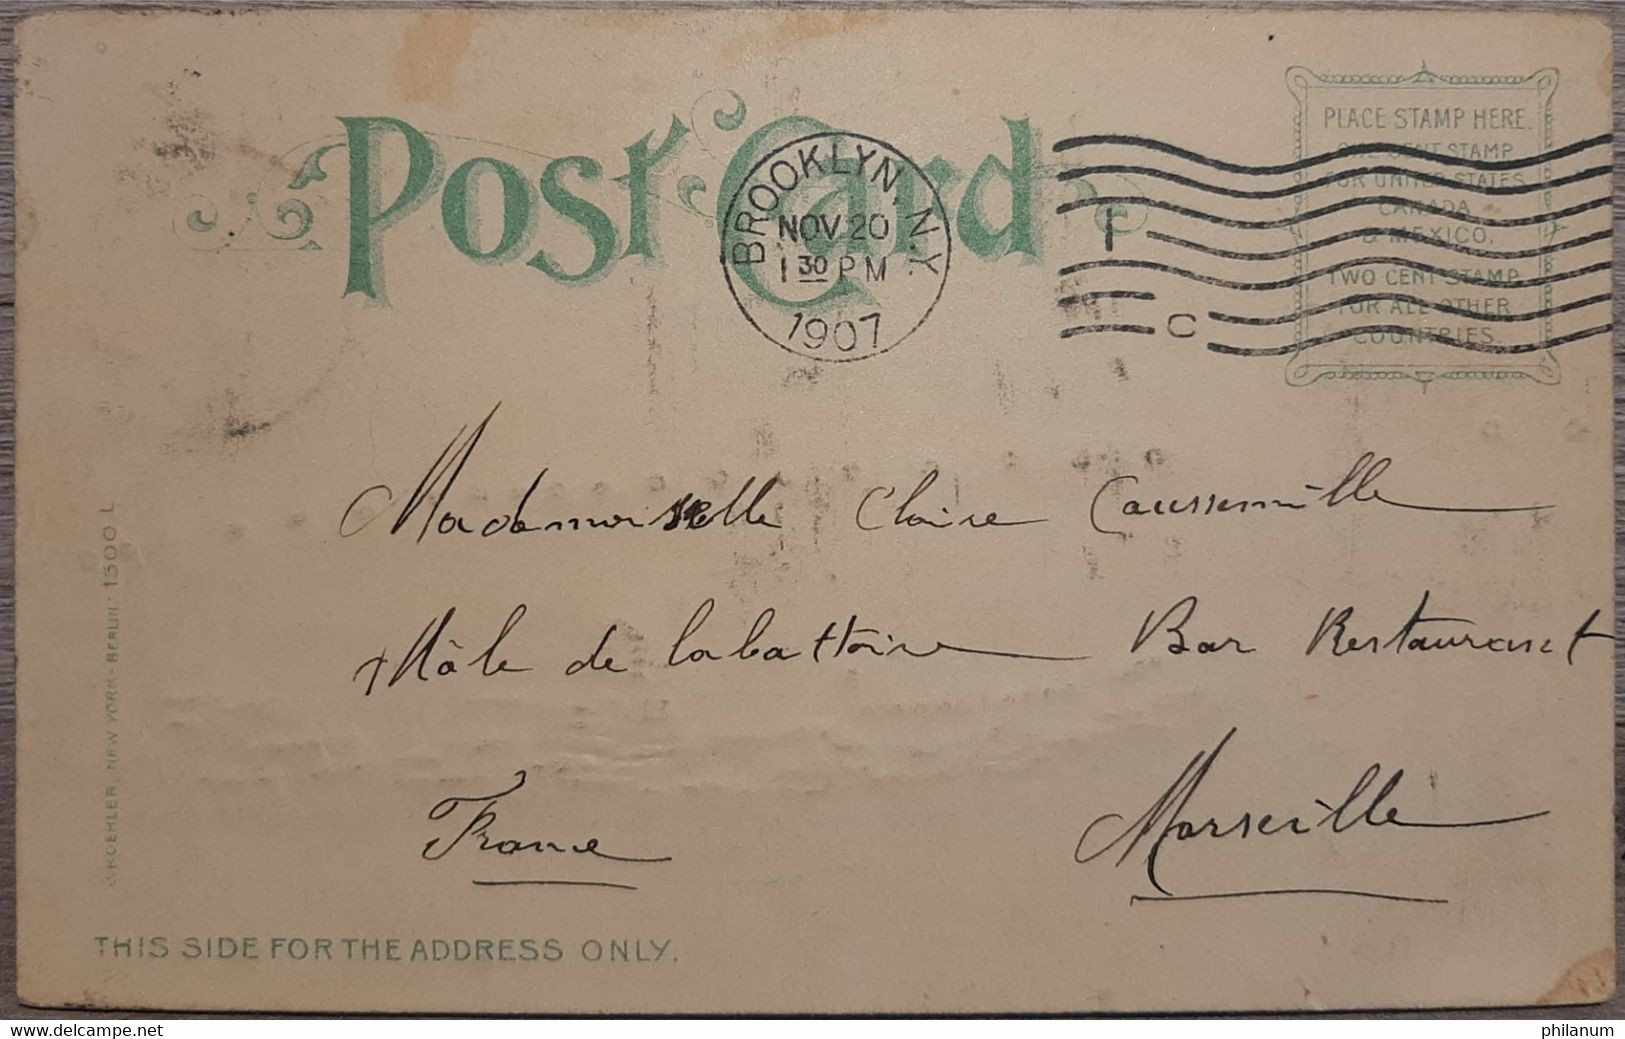 Post Card
BROOKLYN, N.Y.
NOV. 20
1 30 PM
1907
1
C
PLACE STAMP HERE.
ONE CENT STAMP
FOR UNITED STATES
CANADA
& MEXICO.
TWO CENT STAMP
FOR ALL OTHER
COUNTRIES.
Mademoiselle Claire Caussemille
Môle de labattoire Bar Restaurant
France
Marseille
J. KOEHLER, NEW YORK - BERLIN. 1300 L
THIS SIDE FOR THE ADDRESS ONLY.
www.delcampe.net
philanum